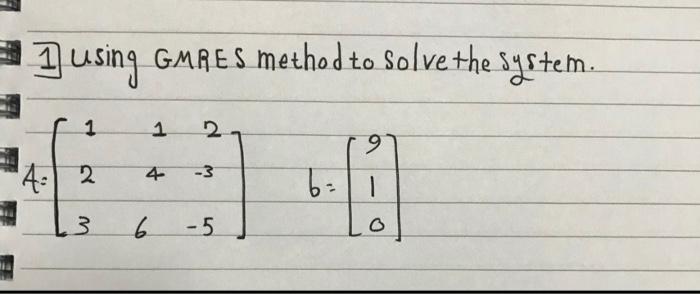 1 using GMRES method to solve the system.
A= [ 1 1 2
2 4 -3
3 6 -5 ]
b= [ 9
1
0 ]